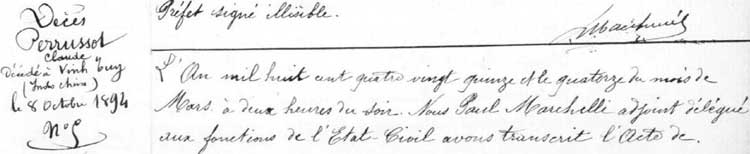 Décès
Perrussot
Claude
décédé à Vinh Tuy
(Indo Chine)
le 8 Octobre 1894
N° 5
Préfet signé illisible.
L'An mil huit cent quatre vingt quinze et le quatorze du mois de
Mars à deux heures du soir. Nous Paul Marchelli adjoint délégué
aux fonctions de l'Etat-Civil avons transcrit l'Acte de.